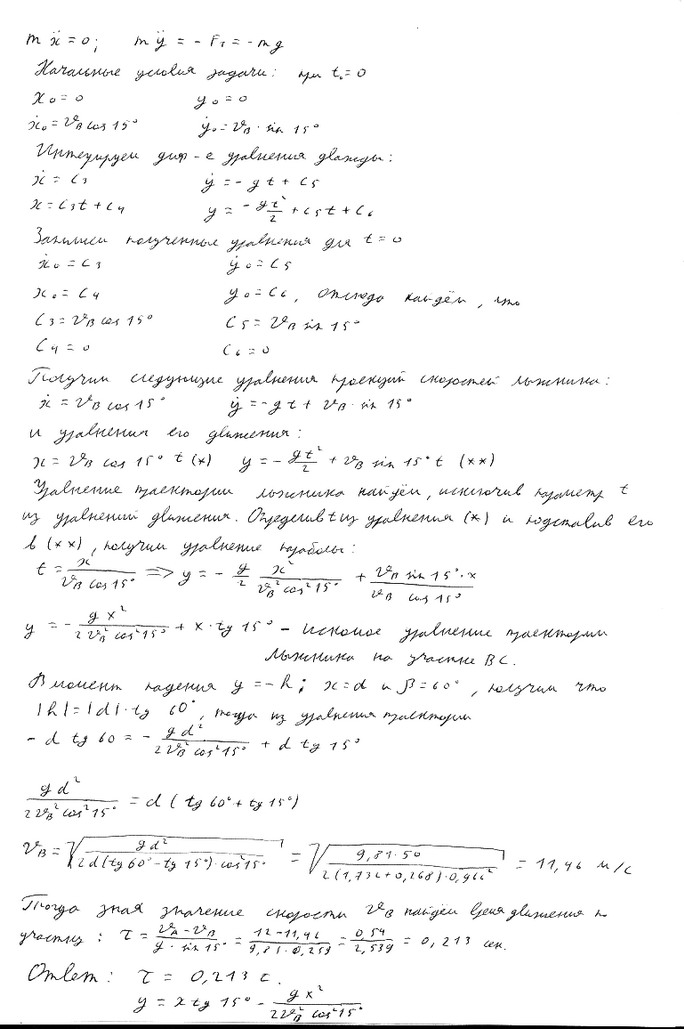 mẍ = 0; mÿ = - F₂ = - mg
Начальные условия задачи: при t₀ = 0
x₀ = 0 y₀ = 0
ẋ₀ = v_B cos 15° ẏ₀ = v_B · sin 15°
Интегрируем диф-е уравнения дважды:
ẋ = C₃ ẏ = - gt + C₅
x = C₃t + C₄ y = - gt²/2 + C₅t + C₆
Запишем полученные уравнения для t = 0
ẋ₀ = C₃ ẏ₀ = C₅
x₀ = C₄ y₀ = C₆, отсюда найдём, что
C₃ = v_B cos 15° C₅ = v_B sin 15°
C₄ = 0 C₆ = 0
Получим следующие уравнения проекций скоростей лыжника:
ẋ = v_B cos 15° ẏ = - gt + v_B · sin 15°
и уравнения его движения:
x = v_B cos 15° t (*) y = - gt²/2 + v_B sin 15° t (**)
Уравнение траектории лыжника найдём, исключив параметр t
из уравнений движения. Определив t из уравнения (*) и подставив его
в (**), получим уравнение параболы:
t = x/(v_B cos 15°) ⟹ y = - g/2 x²/(v_B² cos² 15°) + (v_B sin 15° · x)/(v_B cos 15°)
y = - gx²/(2v_B² cos² 15°) + x · tg 15° - искомое уравнение траектории
лыжника на участке BC.
В момент падения y = - h; x = d и β = 60°, получим что
|h| = |d| · tg 60°, тогда из уравнения траектории
- d tg 60 = - gd²/(2v_B² cos² 15°) + d tg 15°
gd²/(2v_B² cos² 15°) = d (tg 60° + tg 15°)
v_B = √(gd²/(2d(tg 60° - tg 15°) · cos² 15°)) = √(9,81 · 50/(2(1,732 + 0,268) · 0,966²)) = 11,46 м/с
Тогда зная значение скорости v_B найдем время движения на
участке: τ = (v_A - v_B)/(g · sin 15°) = (12 - 11,46)/(9,81 · 0,259) = 0,54/2,539 = 0,213 сек.
Ответ: τ = 0,213 с.
y = x tg 15° - gx²/(2v_B² cos² 15°)